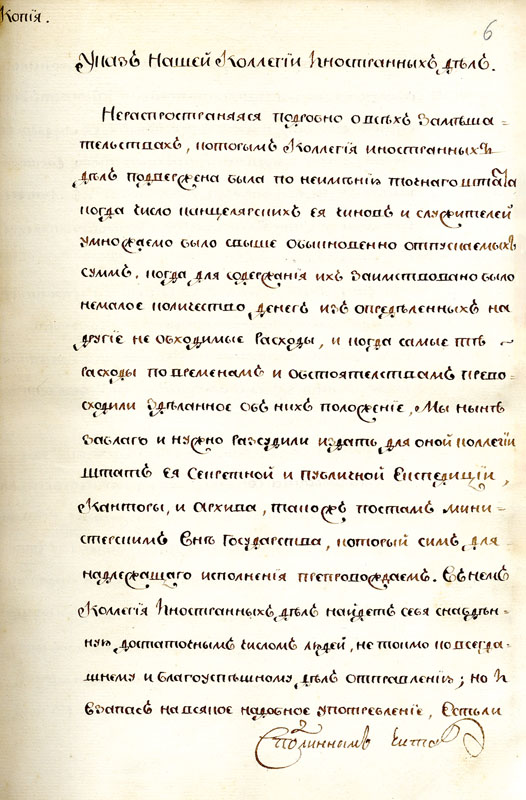 Копія.
6
Указъ Нашей Коллегіи Иностранныхъ дѣлъ.
Нераспространяяся подробно о всѣхъ Замѣша=
тельствахъ, которымъ Коллегія иностранныхъ
дѣлъ подвержена была по неимѣнію точнаго штата
когда число канцелярскихъ ея чиновъ и служителей
умножаемо было свыше обыкновенно отпускаемыхъ
суммъ, когда для содержанія ихъ Заимствовано было
немалое количество денегъ изъ опредѣленныхъ на
другіе не обходимые расходы, и когда самые тѣ
расходы повременамъ и обстоятелствамъ прево=
сходили Здѣланное объ нихъ положеніе, Мы нынѣ
Заблаго и нужно разсудили издать для оной коллегіи
штатъ ея Секретной и публичной Експедиціи,
Канторы, и Архива, також постамъ мини=
стерскимъ внѣ Государства, который симъ для
надлежащаго исполненія препровождаемъ. Въ немъ
Коллегія Иностранныхъ дѣлъ найдетъ себя снабдѣн=
ную достаточнымъ числомъ людей, не токмо ко всегда=
шнему и благоуспѣшному дѣлъ отправленію; но и
взапасъ на всякое надобное употребленіе, Естьли
Сподлиннымъ читалъ